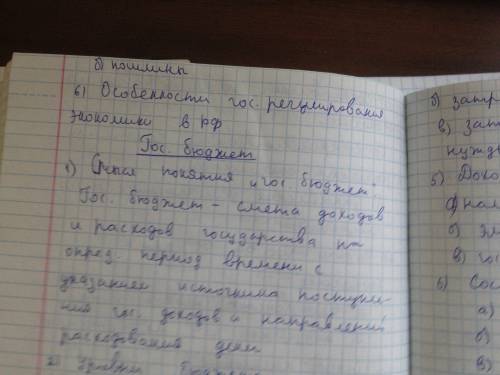 б) пошлины
6) Особенности гос. регулирования
экономики в РФ
Гос. бюджет
1) Смысл понятия „гос. бюджет"
Гос. бюджет - смета доходов
и расходов государства на
опред. период времени с
указанием источника поступле-
ния гос. доходов и направлений
расходования денег
2) Уровни бюджета
б) запр
в) зат
нужд
5) Дохо
а) нал
б)
в) го
6) Сос
а)
б)
в)